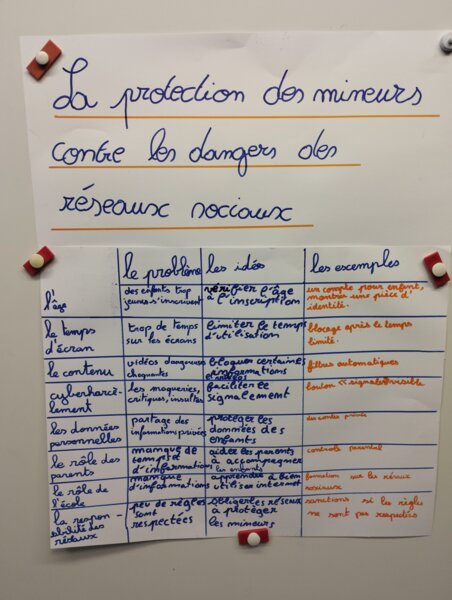 La protection des mineurs
contre les dangers des
réseaux sociaux
le problème les idées les exemples
l'âge
des enfants trop
jeunes s'inscrivent
vérifier l'âge
à l'inscription
un compte pour enfant,
montrer une pièce d'
identité.
le temps
d'écran
trop de temps
sur les écrans
limiter le temps
d'utilisation
blocage après le temps
limité.
le contenu
vidéos dangereuses
choquantes
bloquer certaines
informations
et vidéos
filtres automatiques
cyberharcè-
lement
les moqueries,
critiques, insultes
faciliter le
signalement
bouton « signaler » visible
les données
personnelles
partage des
informations privées
protéger les
données des
enfants
des comptes privés
le rôle des
parents
manque de
temps et
d'informations
aider les parents
à accompagner
les enfants
controle parental
le rôle de
l'école
manque
d'informations
apprendre à bien
utiliser internet
formation sur les réseaux
sociaux
la respon-
abilité des
réseaux
peu de règles
sont
respectées
obliger les réseaux
à protéger
les mineurs
sanctions si les règles
ne sont pas respectées